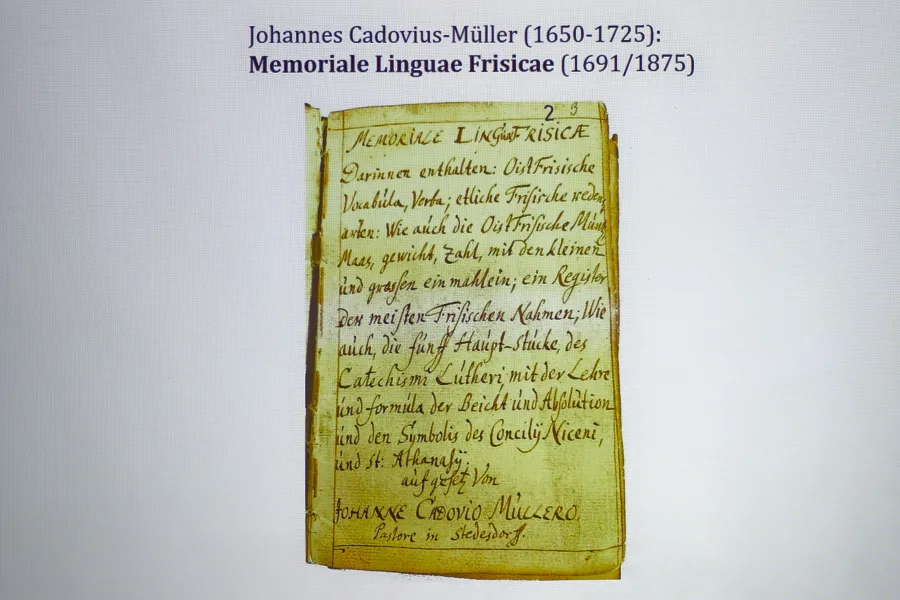 Johannes Cadovius-Müller (1650-1725):
Memoriale Linguae Frisicae (1691/1875)
2 3
MEMORIALE LINGUÆ FRISICÆ
Darinnen enthalten: OistFrisische
Vocabula, Verba; etliche Frisische redens
arten: Wie auch die OistFrisische Müntz
Maas, gewicht, Zahl, mit den kleinen
und grossen einmahlein; ein Register
der meisten Frisischen Nahmen; Wie
auch, die fünff Haupt-Stücke, des
Catechismi Lutheri mit der Lehre
und formula der Beicht und Absolution
und den Symbolis des Concilij Niceni,
und St: Athanasij.
aufgesetz Von
JOHANNE CADOVIO MÜLLERO,
Pastore in Stedesdorff.